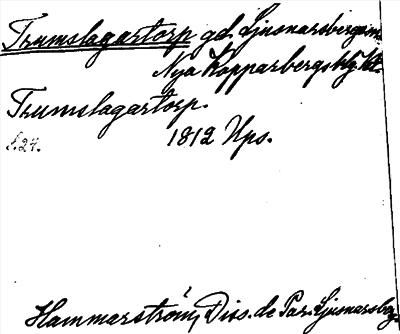 Trumslagartorp gd. Ljusnarsbergs sn.
Nya Kopparbergs hg. Kt.
Trumslagartorp.
s.24.
1812 Ups.
Hammarström, Diss. de Par. Ljusnarsberg.